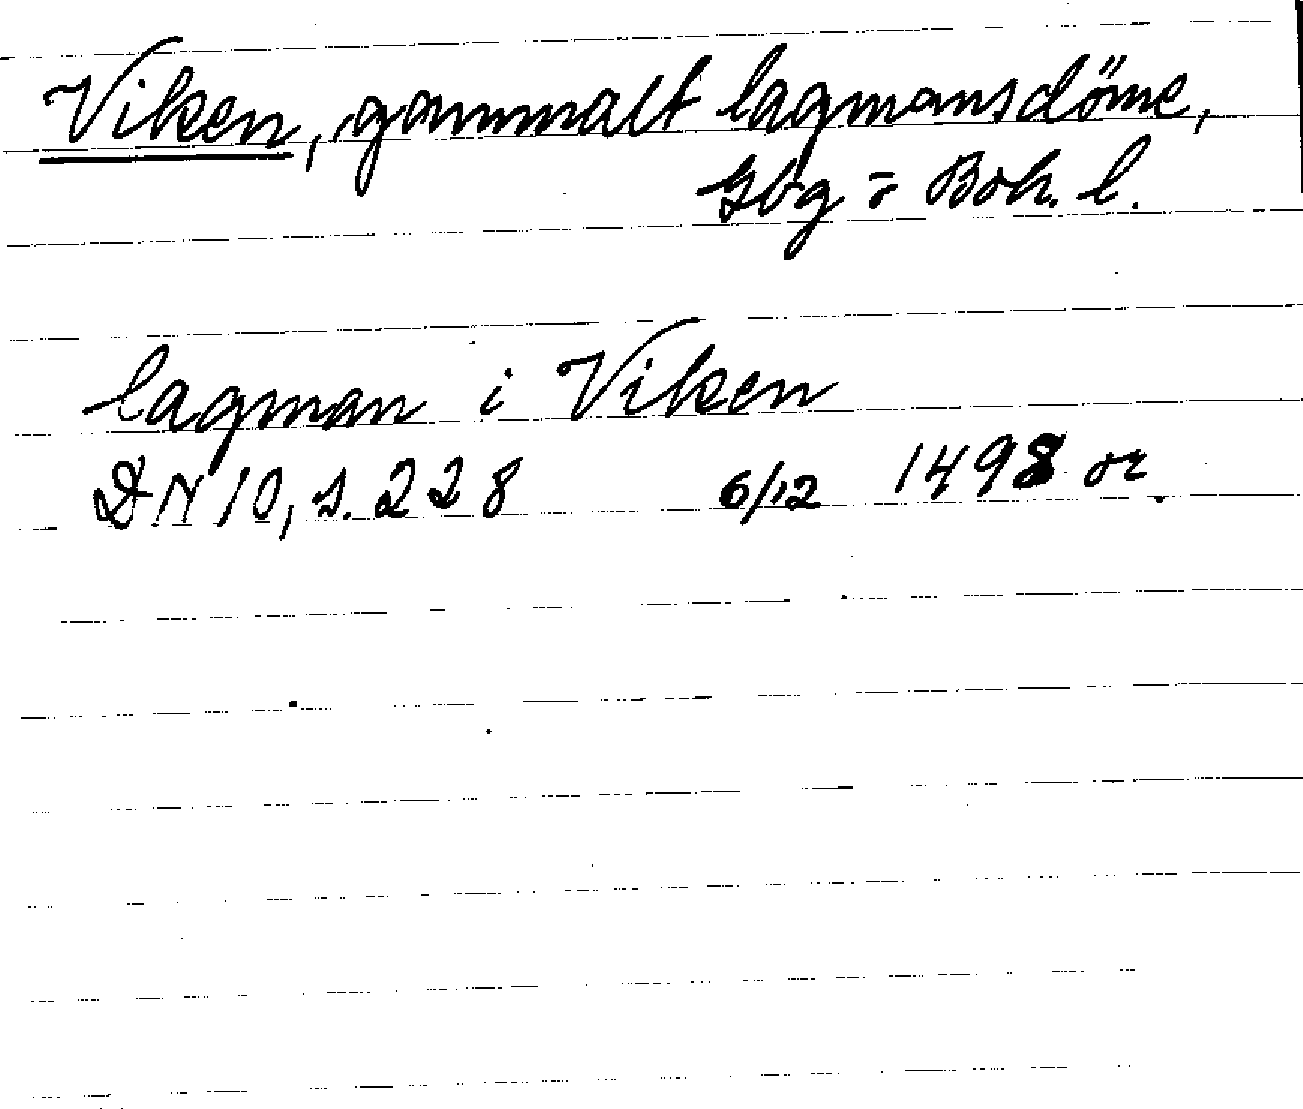 Viken, gammalt lagmansdöme,
Gbg o Boh. l.
lagman i Viken
DN 10, s. 228 6/12 1498 or.